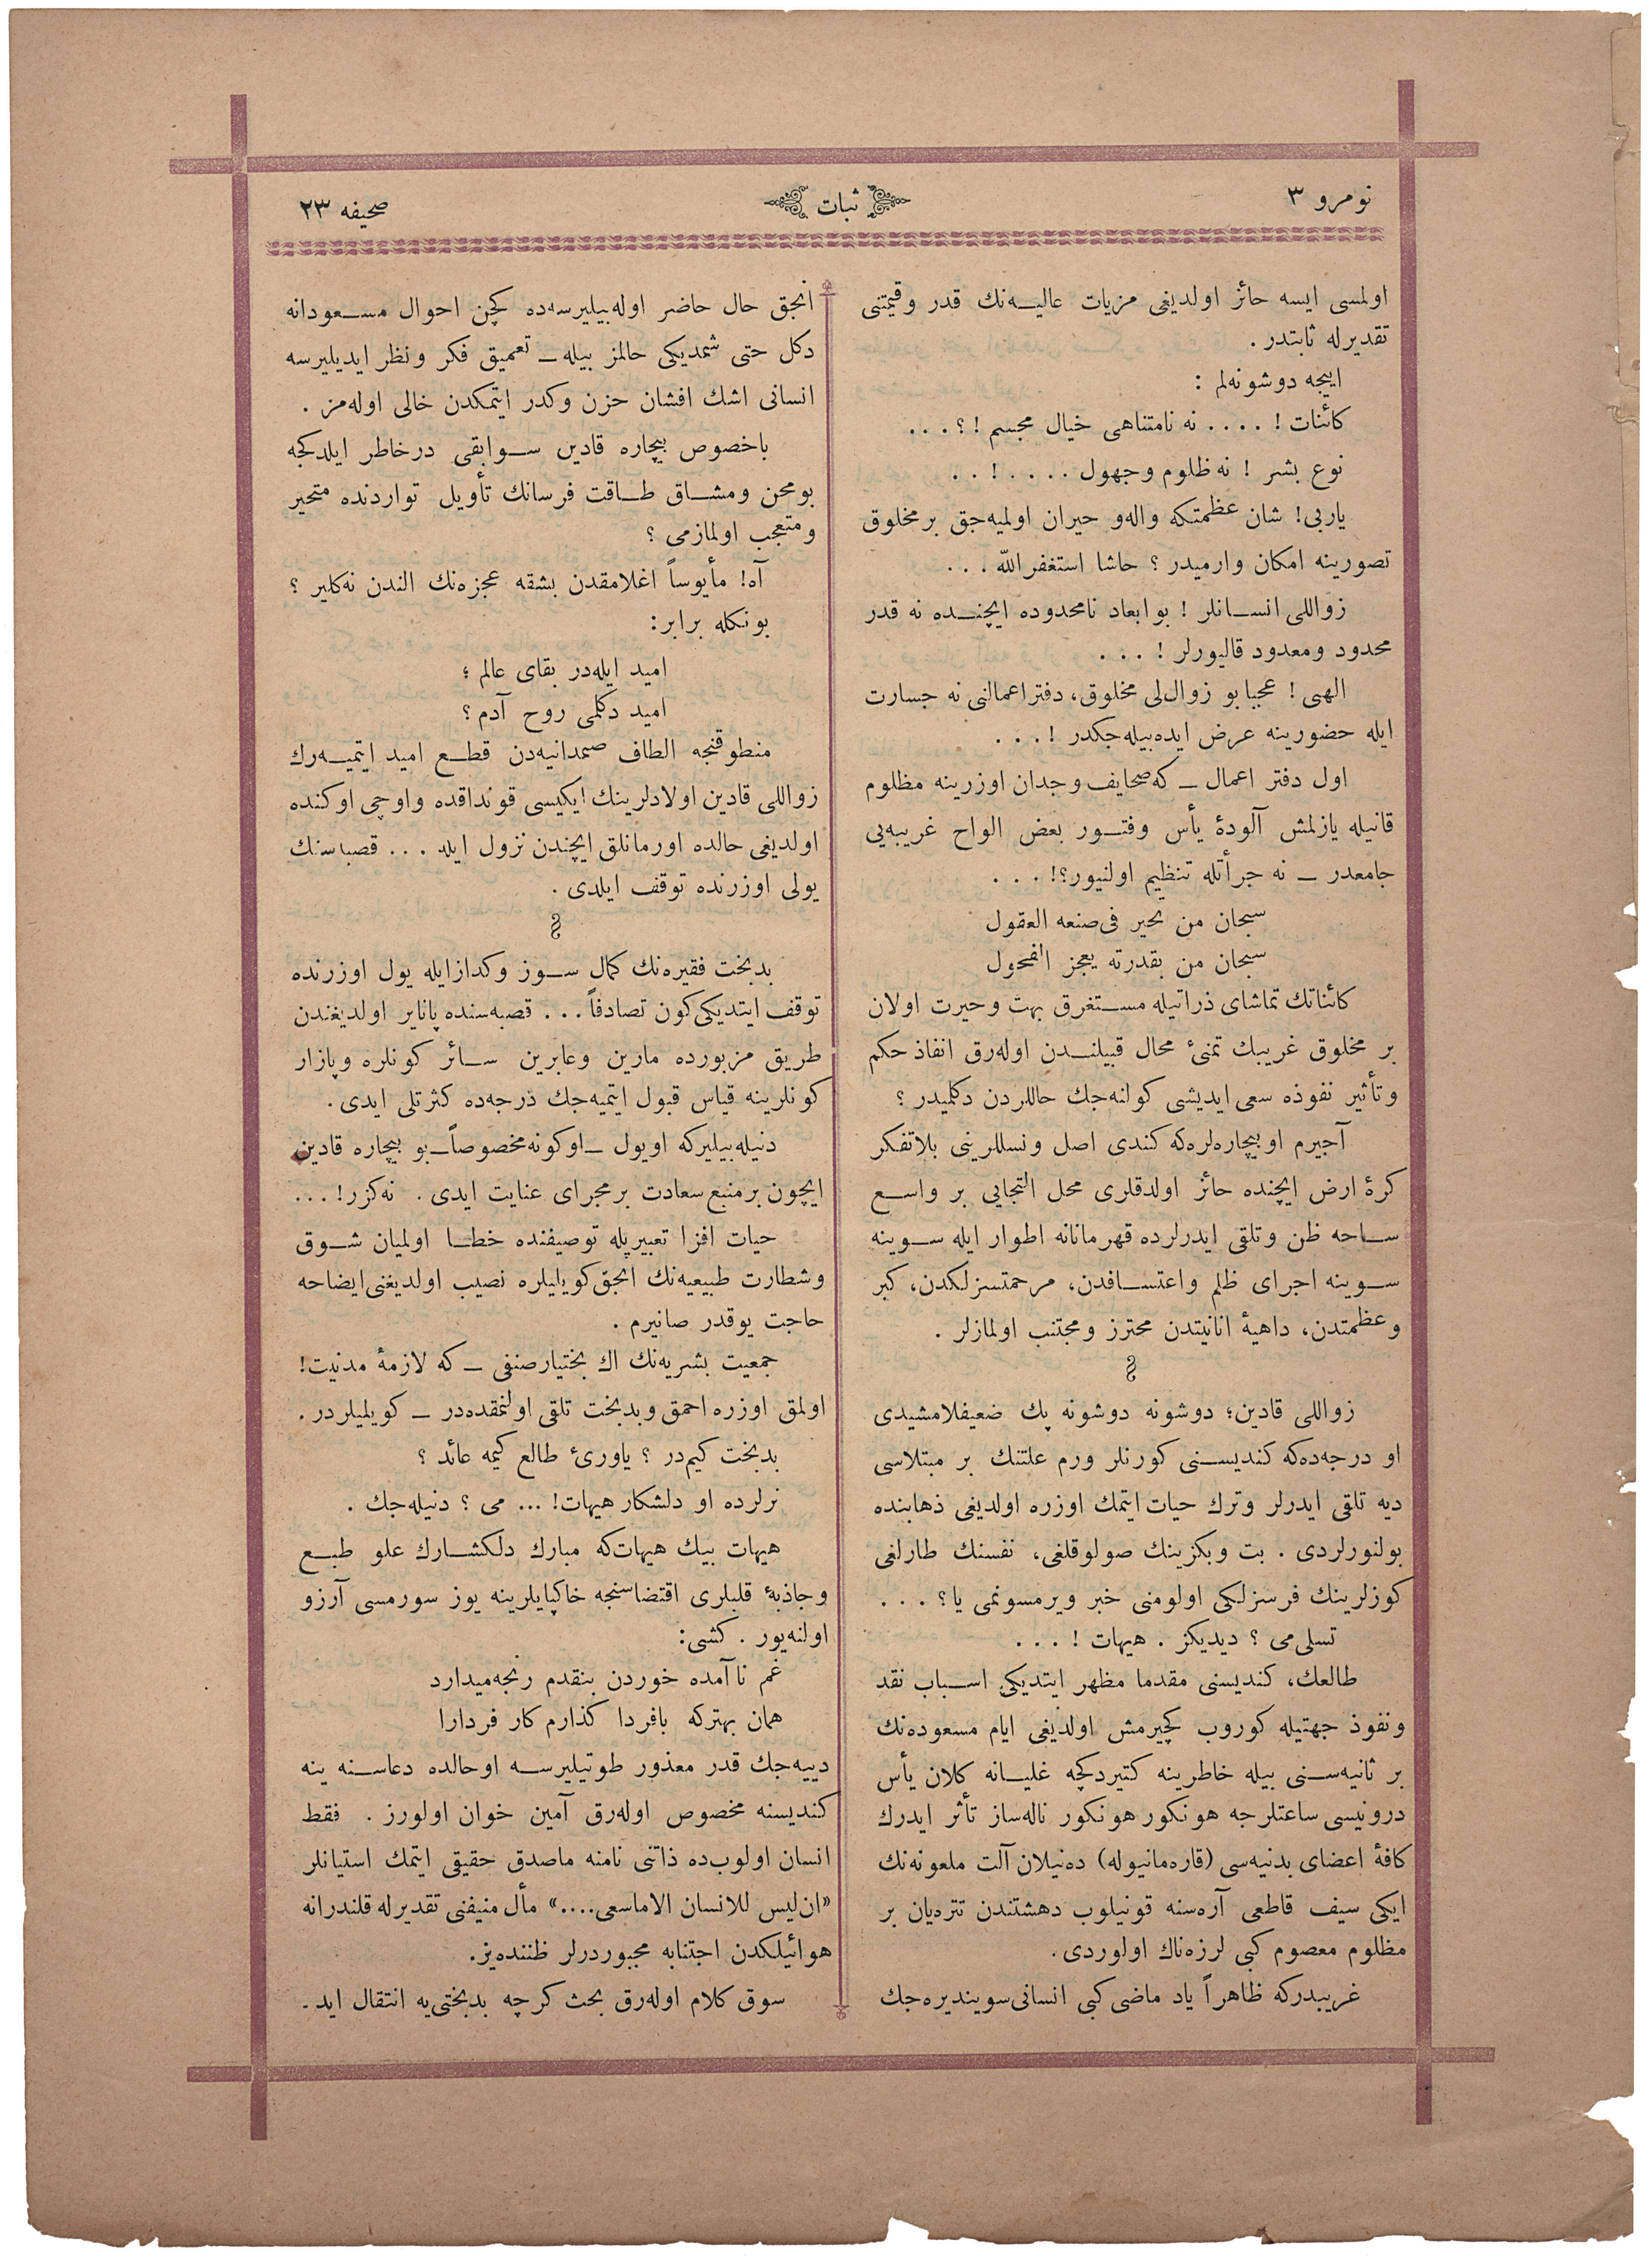 نومرو ٣
ثبات
صحیفه ٢٣
اولمسی ایسه حائز اولدیغی مزیات عالیه‌نك قدر وقیمتنی
تقدیرله ثابتدر .
اییجه دوشونه‌لم :
كائنات ! . . . . نه نامتناهی خیال مجسم ! ؟ . . .
نوع بشر ! نه ظلوم وجهول . . . . ! . .
یاربی ! شان عظمتكه واله‌و حیران اولمیه‌جق برمخلوق
تصورینه امكان وارمیدر ؟ حاشا استغفرالله . . .
زواللی انسانلر ! بو ابعاد نامحدوده ایچنده نه قدر
محدود ومعدود قالیورلر ! . . .
الهی ! عجبا بو زوال‌لی مخلوق، دفتراعمالنی نه جسارت
ایله حضورینه عرض ایده‌بیله‌جكدر ! . . .
اول دفتر اعمال ــ كه صحایف وجدان اوزرینه مظلوم
قانیله یازلمش آلودهٔ یأس وفتور بعض الواح غریبه‌یی
جامعدر ــ نه جرأتله تنظیم اولنیور؟! . . .
سبحان من تحیر فی‌صنعه العقول
سبحان من بقدرته یعجز الفحول
كائناتك تماشای ذراتیله مستغرق بهت وحیرت اولان
بر مخلوق غریبك تمنیٔ محال قبیلندن اوله‌رق انفاذ حكم
وتأثیر نفوذه سعی ایدیشی كولنه‌جك حاللردن دكلمیدر ؟
آجیرم اوبیچاره‌لره‌كه كندی اصل ونسللرینی بلاتفكر
كرهٔ ارض ایچنده حائز اولدقلری محل التجایی بر واسع
ساحه ظن وتلقی ایدرلرده قهرمانانه اطوار ایله سوینه
سوینه اجرای ظلم واعتسافدن، مرحمتسزلكدن، كبر
وعظمتدن، داهیهٔ انانیتدن محترز ومجتنب اولمازلر .
زواللی قادین؛ دوشونه دوشونه پك ضعیفلامشیدی
او درجه‌ده‌كه كندیسنی كورنلر ورم علتنك بر مبتلاسی
دیه تلقی ایدرلر وترك حیات ایتمك اوزره اولدیغی ذهابنده
بولنورلردی . بت وبكزینك صولوقلغی، نفسنك طارلغی
كوزلرینك فرسزلكی اولومنی خبر ویرمسونمی یا؟ . . .
تسلی‌می ؟ دیدیكز . هیهات ! . . .
طالعك، كندیسنی مقدما مظهر ایتدیكی اسباب نقد
ونفوذ جهتیله كوروب كچیرمش اولدیغی ایام مسعوده‌نك
بر ثانیه‌سنی بیله خاطرینه كتیردكجه غلیانه كلان یأس
درونیسی ساعتلرجه هونكور هونكور ناله‌ساز تأثر ایدرك
كافهٔ اعضای بدنیه‌سی (قاره‌مانیوله) ده‌نیلان آلت ملعونه‌نك
ایكی سیف قاطعی آره‌سنه قونیلوب دهشتندن تتره‌یان بر
مظلوم معصوم كبی لرزه‌ناك اولوردی .
غریبدركه ظاهراً یاد ماضی كبی انسانی‌سویندیره‌جك
انجق حال حاضر اوله‌بیلیرسه‌ده كچن احوال مسعودانه
دكل حتی شمدیكی حالمز بیله ــ تعمیق فكر ونظر ایدیلیرسه
انسانی اشك افشان حزن وكدر ایتمكدن خالی اوله‌مز .
باخصوص بیچاره قادین سوابقی درخاطر ایلدكجه
بومحن ومشاق طاقت فرسانك تأویل تواردنده متحیر
ومتعجب اولمازمی ؟
آه! مأیوساً اغلامقدن بشقه عجزه‌نك الندن نه‌كلیر ؟
بونكله برابر:
امید ایله‌در بقای عالم ؛
امید دكلمی روح آدم ؟
منطوقنجه الطاف صمدانیه‌دن قطع امید ایتمیه‌رك
زواللی قادین اولادلرینك ایكیسی قونداقده واوچی اوكنده
اولدیغی حالده اورمانلق ایچندن نزول ایله . . . قصباسنك
یولی اوزرنده توقف ایلدی .
بدبخت فقیره‌نك كمال سوز وكدازایله یول اوزرنده
توقف ایتدیكی‌كون تصادفاً . . . قصبه‌سنده پانایر اولدیغندن
طریق مزبورده مارین وعابرین سائر كونلره وپازار
كونلرینه قیاس قبول ایتمیه‌جك درجه‌ده كثرتلی ایدی .
دنیله‌بیلیركه اویول ــ اوكونه‌مخصوصاً ــ بو بیچاره قادین
ایچون برمنبع‌سعادت برمجرای عنایت ایدی . نه‌كزر! . . .
حیات افزا تعبیریله توصیفنده خطا اولمیان شوق
وشطارت طبیعیه‌نك انجق‌كویلیلره نصیب اولدیغنی‌ایضاحه
حاجت یوقدر صانیرم .
جمعیت بشریه‌نك اك بختیارصنفی ــ كه لازمهٔ مدنیت!
اولمق اوزره احمق وبدبخت تلقی اولنمقده‌در ــ كویلیلردر .
بدبخت كیم‌در ؟ یاوریٔ طالع كیمه عائد ؟
نرلرده او دلشكار هیهات! ... می ؟ دنیله‌جك .
هیهات بیك هیهات‌كه مبارك دلكشارك علو طبع
وجاذبهٔ قلبلری اقتضاسنجه خاكپایلرینه یوز سورمسی آرزو
اولنه‌یور . كشی:
غم ناآمده خوردن بنقدم رنجه‌میدارد
همان بهتركه بافردا كذارم كار فردارا
دییه‌جك قدر معذور طوتیلیرسه اوحالده دعاسنه ینه
كندیسنه مخصوص اوله‌رق آمین خوان اولورز . فقط
انسان اولوب‌ده ذاتنی نامنه ماصدق حقیقی ایتمك استیانلر
«ان‌لیس للانسان الاماسعی....» مأل منیفنی تقدیرله قلندرانه
هوائیلكدن اجتنابه مجبوردرلر ظننده‌یز.
سوق كلام اوله‌رق بحث كرچه بدبختی‌یه انتقال اید ـ